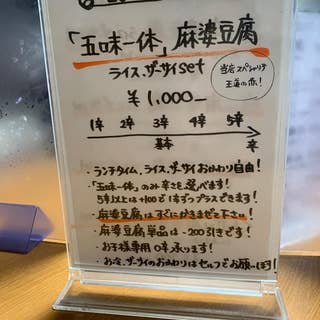 「五味一体」麻婆豆腐
ライス、ザーサイset
¥1,000-
当店スペシャリテ
王道の赤!
1辛 2辛 3辛 4辛 5辛
基本 辛
・ランチタイム、ライス、ザーサイおかわり自由!
・「五味一体」のみ辛さを選べます!
5辛以上は+100で1辛ずつプラスできます!
・麻婆豆腐はすぐにかきまぜて下さい!
・麻婆豆腐単品は-200引きです!
・お子様専用0辛承ります!
・お冷、ザーサイのおかわりはセルフでお願い致します!